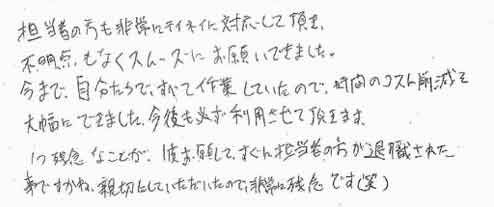 担当者の方も非常にテイネイに対応して頂き、
不明点もなくスムーズにお願いできました。
今まで、自分たちで、すべて作業していたので、時間のコスト削減を
大幅にできました。今後も必ず利用させて頂きます。
1つ残念なことが、1度お願いして、すぐに担当者の方が退職された
事ですかね、親切にしていただいたので、非常に残念です(笑)